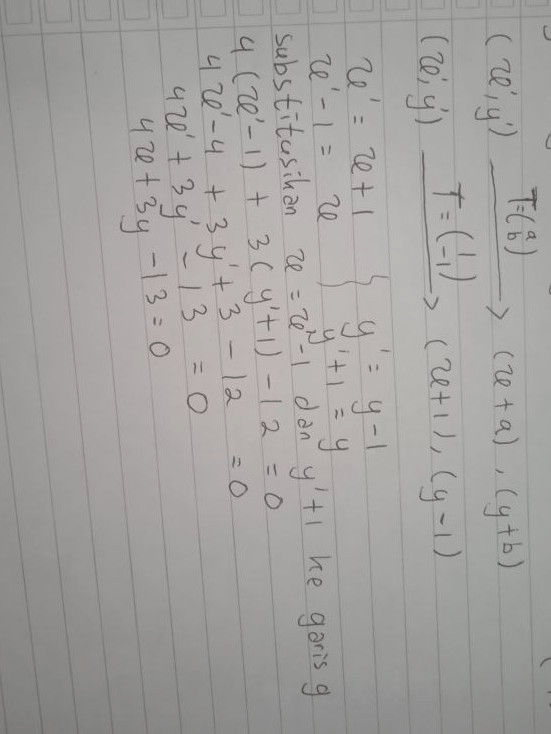 (x', y') T=(a b) → (x+a), (y+b)
(x', y') T=(1 -1) → (x+1), (y-1)
x' = x+1 } y' = y-1
x'-1 = x } y'+1 = y
substitusikan x = x'-1 dan y'+1 ke garis g
4(x'-1) + 3(y'+1) - 12 = 0
4x'-4 + 3y'+3 - 12 = 0
4x' + 3y' - 13 = 0
4x + 3y - 13 = 0